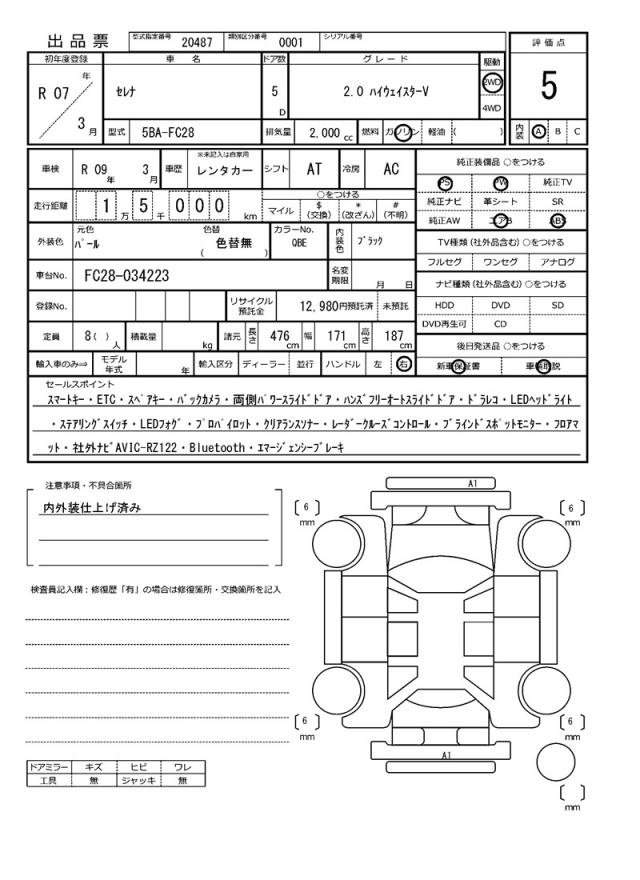 出品票 型式指定番号 20487 類別区分番号 0001 シリアル番号
初年度登録 車名 ドア数 グレード 駆動 評価点
R 07 年 3 月 セレナ 5 D 2.0 ハイウェイスターV 2WD 4WD 5
型式 5BA-FC28 排気量 2,000 cc 燃料 ガソリン 軽油 ( ) 内装 A B C
車検 R 09 年 3 月 車歴 ※未記入は自家用 レンタカー シフト AT 冷房 AC 純正装備品 ○をつける
PS PW 純正TV
走行距離 1 5 万 千 0 0 0 km ○をつける
マイル $ (交換) * (改ざん) # (不明)
純正ナビ 革シート SR
純正AW エアB ABS
外装色 元色 パール 色替 色替無 ( ) カラーNo. QBE 内装色 ブラック
TV種類 (社外品含む) ○をつける
フルセグ ワンセグ アナログ
車台No. FC28-034223 名変期限 月 日
ナビ種類 (社外品含む) ○をつける
登録No. リサイクル預託金 12,980円預託済 未預託
HDD DVD SD
DVD再生可 CD
定員 8( ) 人 積載量 kg 諸元 長さ 476 cm 幅 171 cm 高さ 187 cm
後日発送品 ○をつける
輸入車のみ⇒ モデル年式 年 輸入区分 ディーラー 並行 ハンドル 左 右 新車保証書 車輌取説
セールスポイント
スマートキー・ETC・スペアキー・バックカメラ・両側パワースライドドア・ハンズフリーオートスライドドア・ドラレコ・LEDヘッドライト
・ステアリングスイッチ・LEDフォグ・プロパイロット・クリアランスソナー・レーダークルーズコントロール・ブラインドスポットモニター・フロアマ
ット・社外ナビAVIC-RZ122・Bluetooth・エマージェンシーブレーキ
注意事項・不具合箇所
内外装仕上げ済み
検査員記入欄：修復歴「有」の場合は修復箇所・交換箇所を記入
A1
6 mm
6 mm
6 mm
6 mm
A1
mm
ドアミラー キズ ヒビ ワレ
工具 無 ジャッキ 無